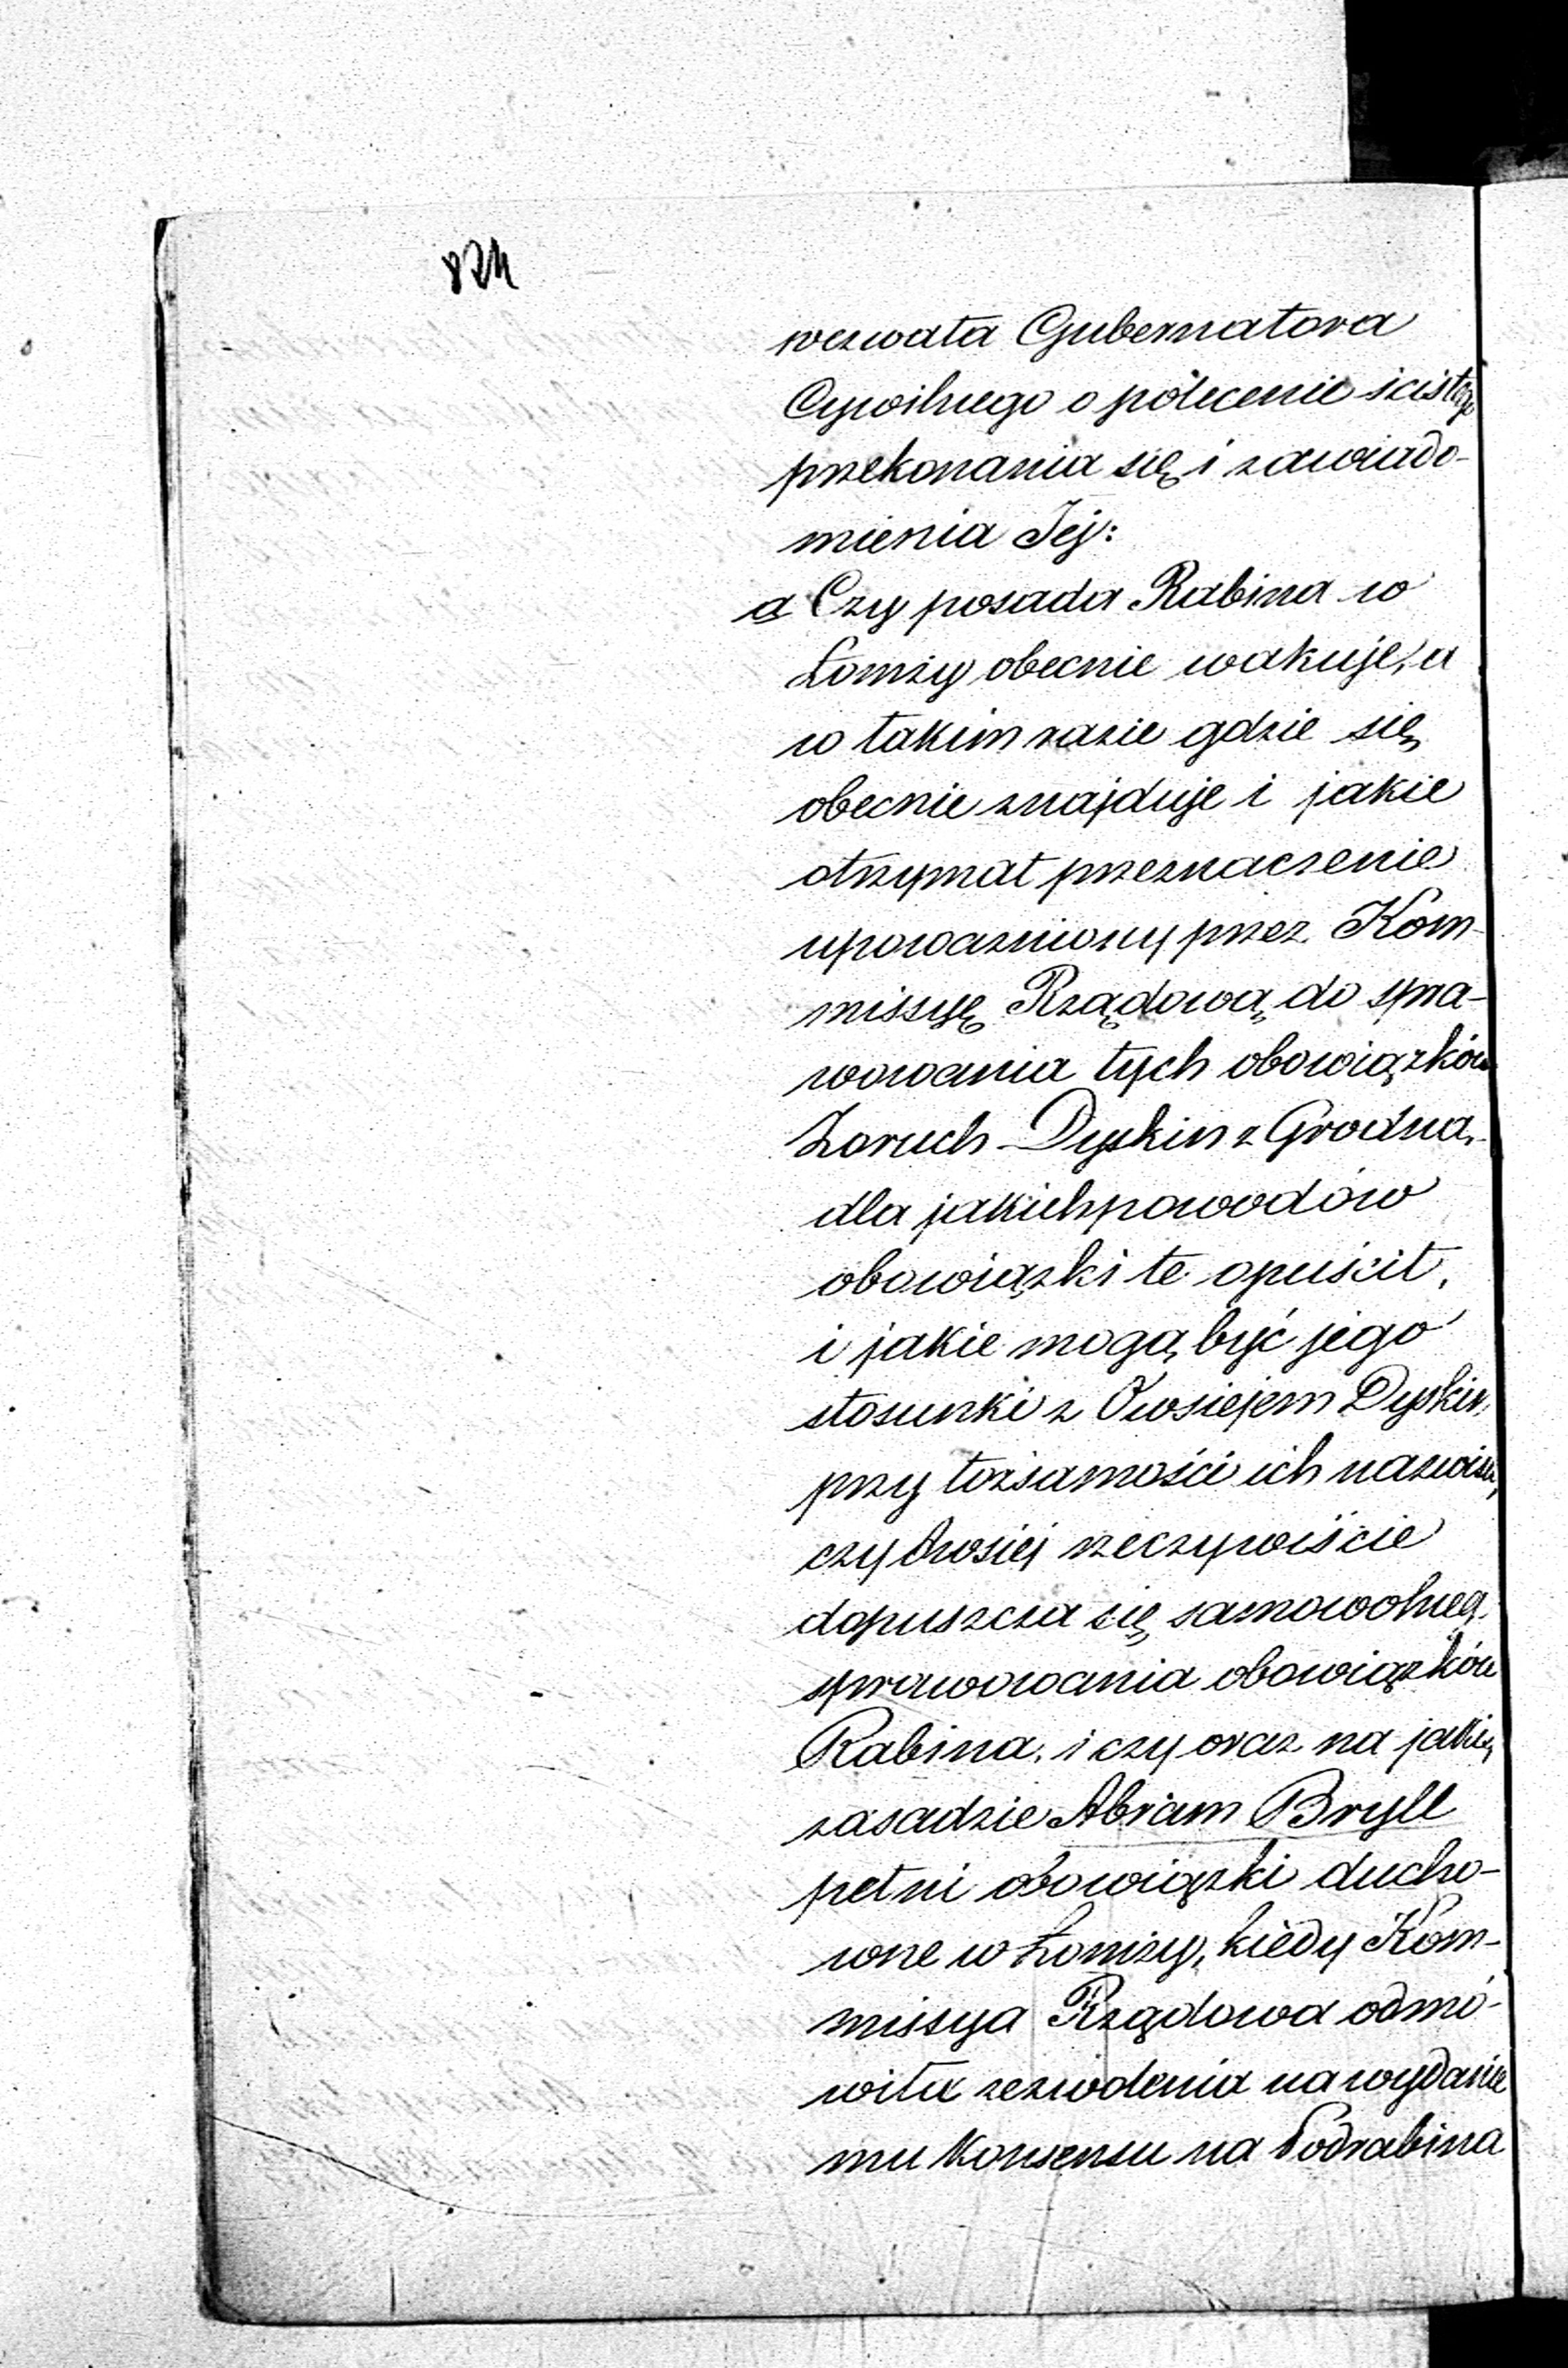 824
wezwała Gubernatora
Cywilnego o polecenie ścisłego
przekonania się i zawiado-
mienia Jej:
a Czy posada Rabina w
Łomży obecnie wakuje, a
w takim razie gdzie się
obecnie znajduje i jakie
otrzymał przeznaczenie
upoważniony przez Kom-
missyę Rządową do spra-
wowania tych obowiązków
Zoruch Dyskin z Grodna,
dla jakich powodów
obowiązki te opuścił,
i jakie mogą być jego
stosunki z Owsiejem Dyskin,
przy tożsamości ich nazwisk,
czy Owsiej rzeczywiście
dopuszcza się samowolneg.
sprawowania obowiązków
Rabina, i czy oraz na jakiej
zasadzie Abram Bryll
pełni obowiązkiducho-
wne w Łomży, kiedy Kom-
missya Rządowa odmó-
wiła zezwolenia na wydanie
mu Konsensu na Podrabina